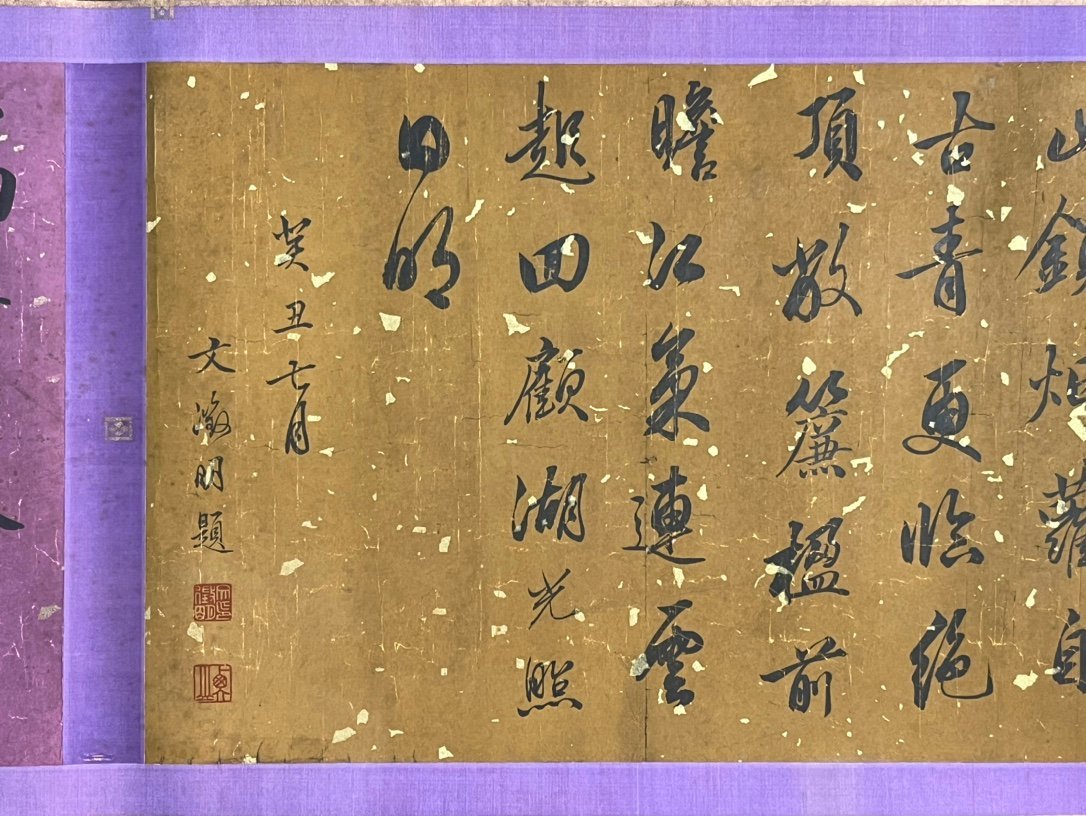 山鎖烟蘿自
古青更臨絕
頂敞簾楹前
瞻江氣連雲
起回顧湖光照
日明
癸丑七月
文徵明題